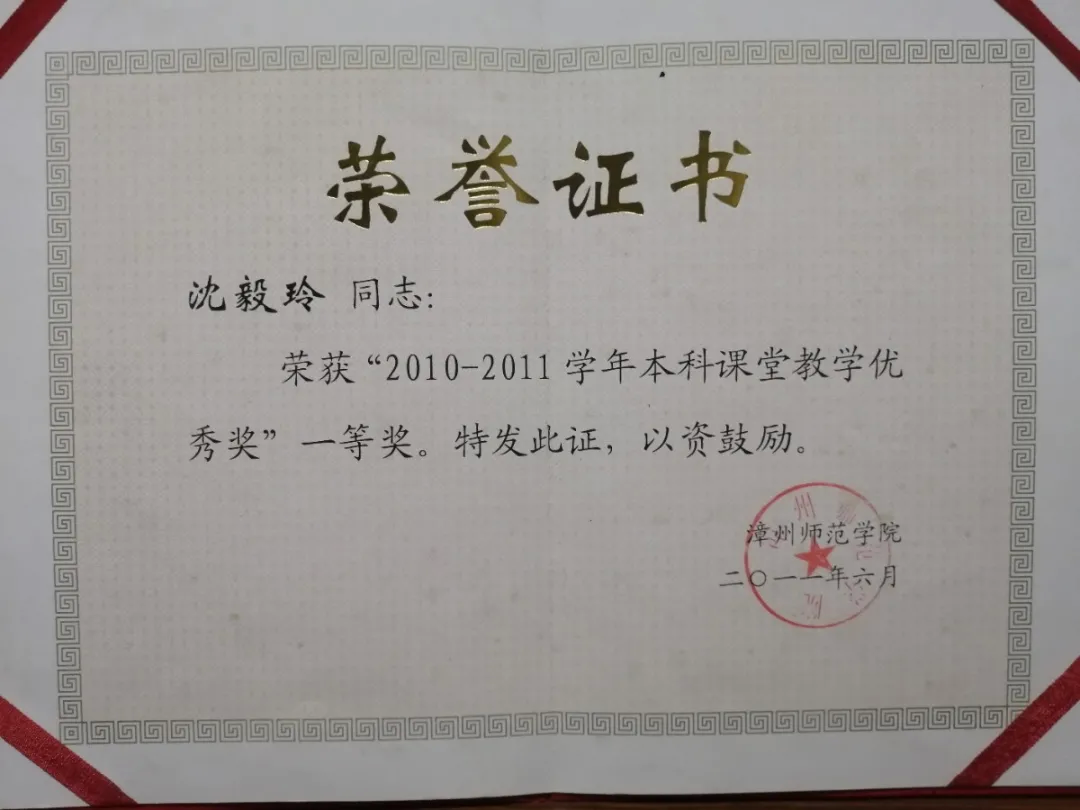 荣誉证书
沈毅玲 同志：
荣获“2010-2011学年本科课堂教学优
秀奖”一等奖。特发此证，以资鼓励。
漳州师范学院
二〇一一年六月